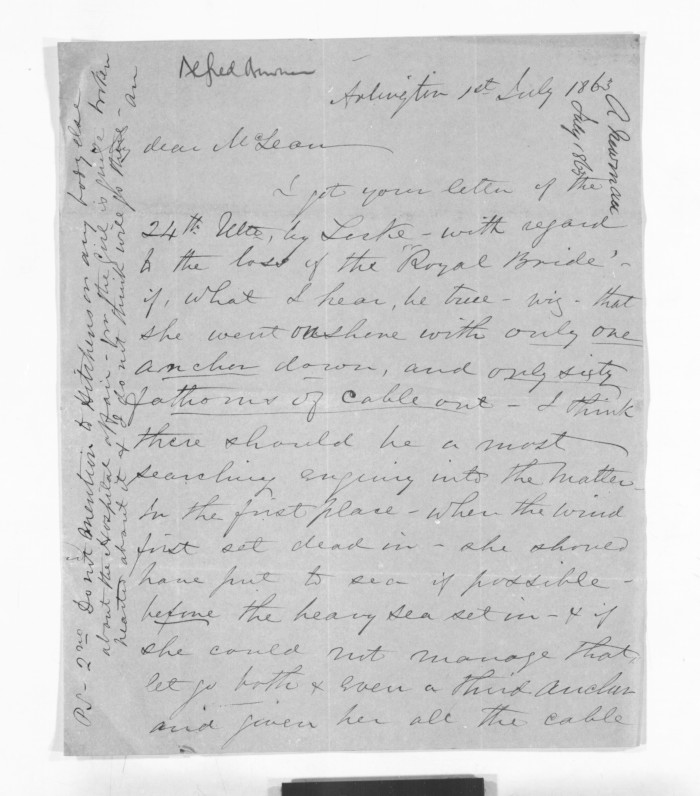 Alfred Newman
Arlington 1st July 1863
A Newman
July 1863
dear McLean
I got your letter of the
24th Ulte, by Locke - with regard
to the loss of the "Royal Bride" -
if, what I hear, be true - viz - that
she went on shore with only one
anchor down, and only sixty
fathoms of cable out - I think
there should be a most
searching enquiry into the matter -
In the first place - when the wind
first set dead in - she should
have put to sea if possible -
before the heavy sea set in - & if
she could not manage that,
let go both & even a third anchor
and given her all the cable
PS - 2nd Do not mention to Hitchens or any body else
about the Hospital affair - for the Girl is quite broken
hearted about it & I do not think will go there - an